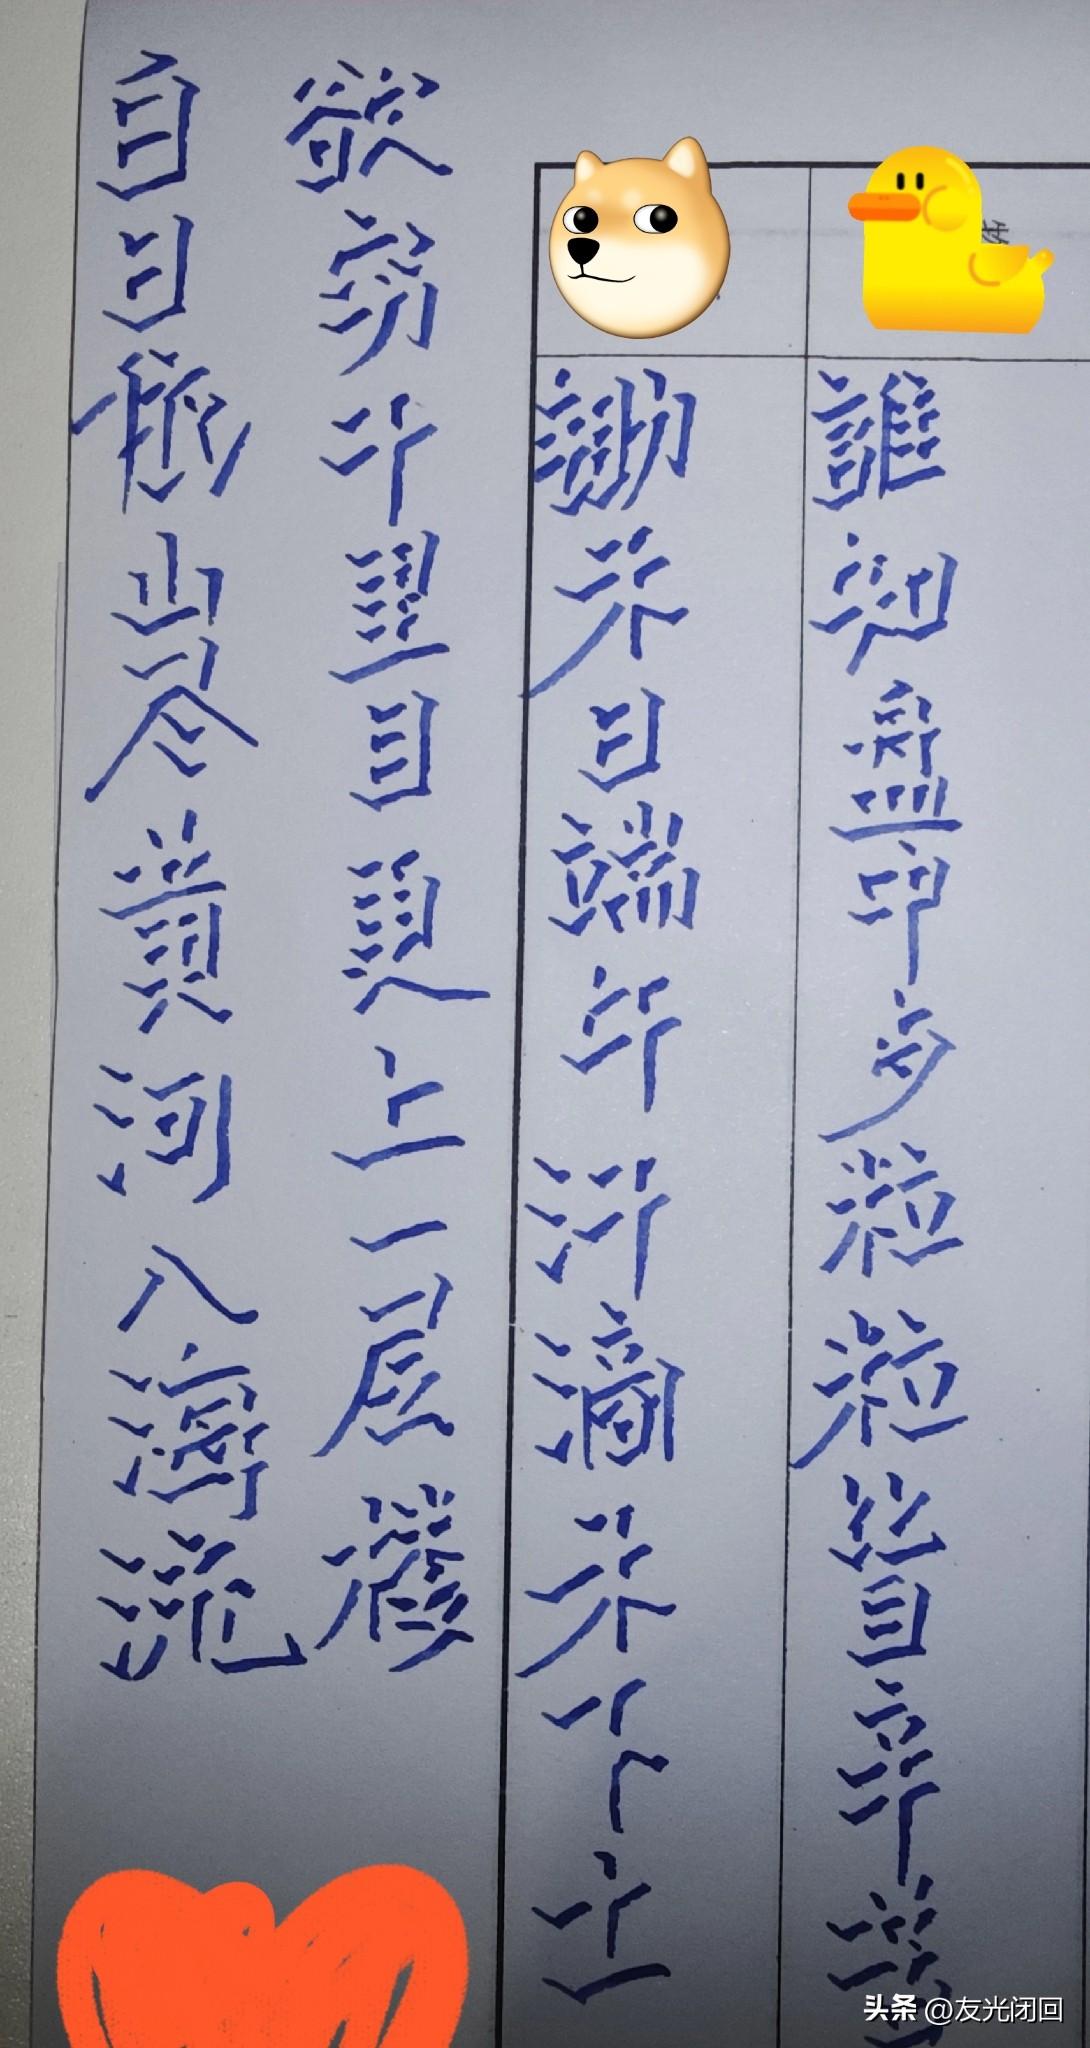 白日依山尽黄河入海流
欲穷千里目更上一层楼
锄禾日当午汗滴禾下土
誰知盘中餐粒粒皆辛苦
头条 @友光闭回